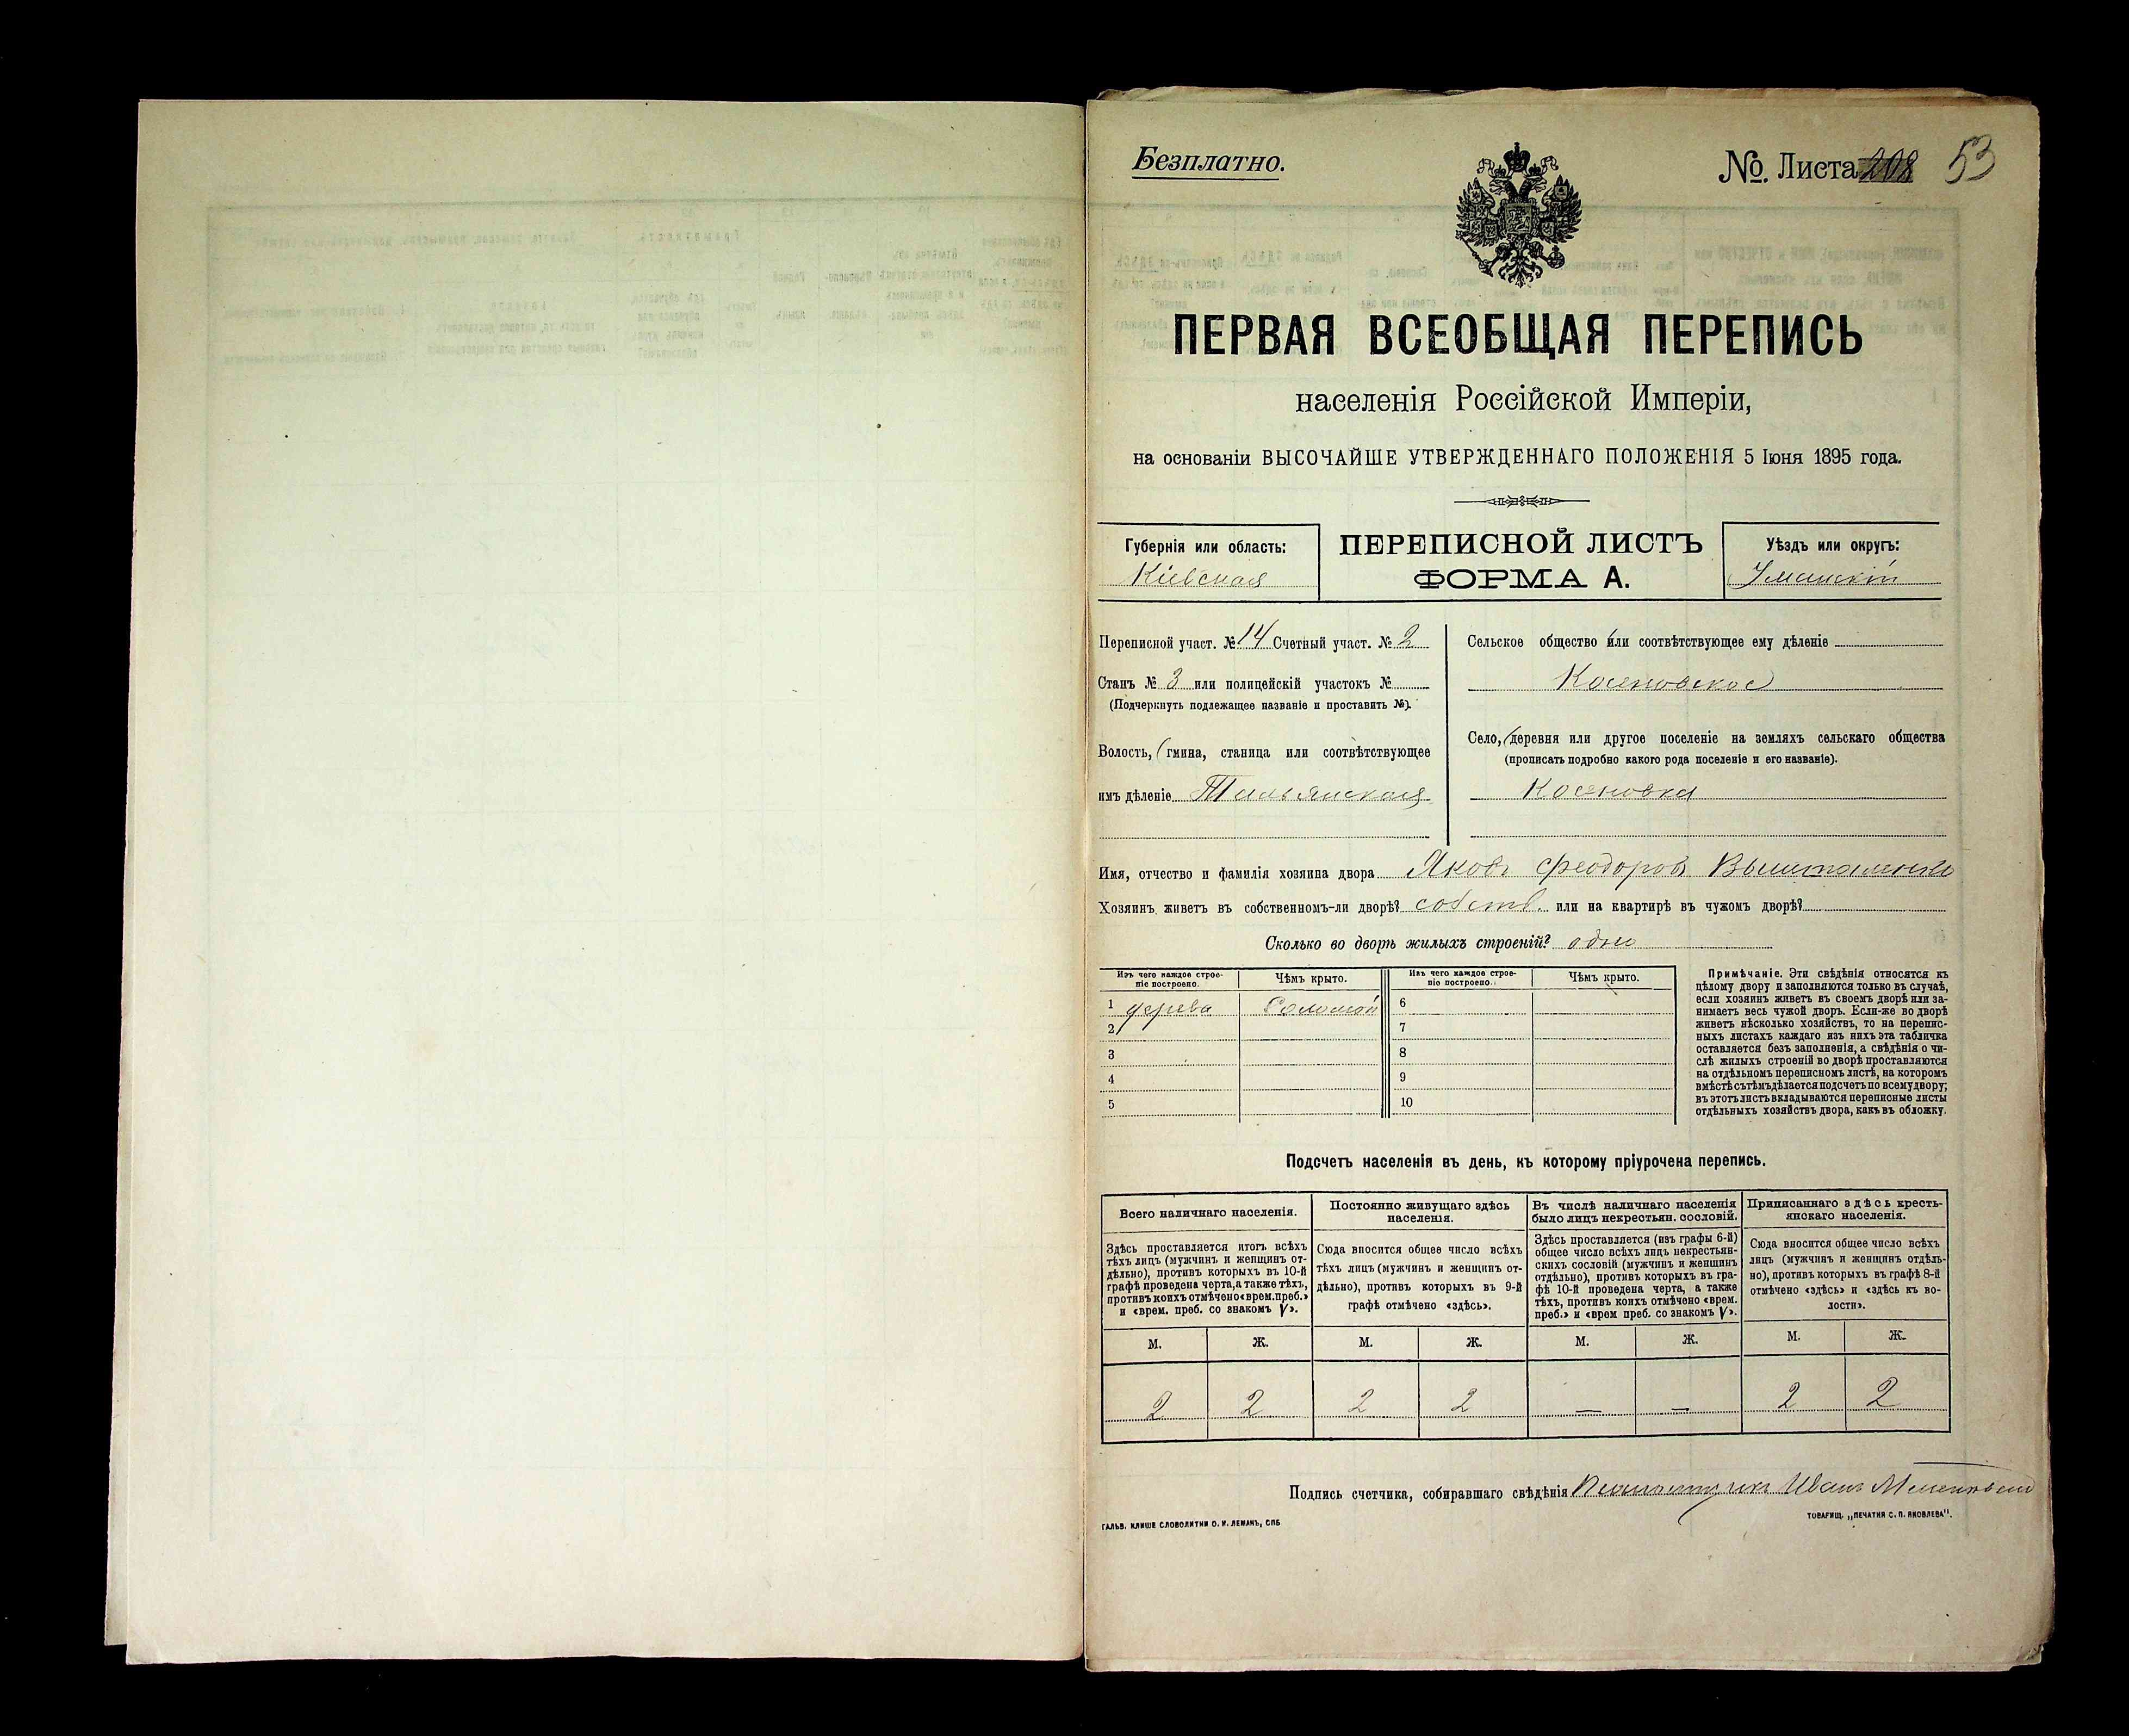 Безплатно.
№. Листа 208 53
ПЕРВАЯ ВСЕОБЩАЯ ПЕРЕПИСЬ
населенія Россійской Имперіи,
на основаніи ВЫСОЧАЙШЕ УТВЕРЖДЕННАГО ПОЛОЖЕНІЯ 5 Іюня 1895 года.
Губернія или область:
Кіевская
ПЕРЕПИСНОЙ ЛИСТЪ
ФОРМА А.
Уѣздъ или округъ:
Уманскій
Переписной участ. № 14 Счетный участ. № 2
Станъ № 3 или полицейскій участокъ №
(Подчеркнуть подлежащее названіе и проставить №).
Волость, (гмина, станица или соотвѣтствующее
имъ дѣленіе Тальянская
Сельское общество или соотвѣтствующее ему дѣленіе
Косеновское
Село, (деревня или другое поселеніе на земляхъ сельскаго общества
(прописать подробно какого рода поселеніе и его названіе).
Косеновка
Имя, отчество и фамилія хозяина двора Яковъ Феодоровъ
Хозяинъ живетъ въ собственномъ-ли дворѣ? собств. или на квартирѣ въ чужомъ дворѣ?
Сколько во дворѣ жилыхъ строеній? одно
Изъ чего каждое строе-
ніе построено.
Чѣмъ крыто.
Изъ чего каждое строе-
ніе построено.
Чѣмъ крыто.
1 дерева Соломой 6
2 7
3 8
4 9
5 10
Примѣчаніе. Эти свѣдѣнія относятся къ
цѣлому двору и заполняются только въ случаѣ,
если хозяинъ живетъ въ своемъ дворѣ или за-
нимаетъ весь чужой дворъ. Если-же во дворѣ
живетъ нѣсколько хозяйствъ, то на перепис-
ныхъ листахъ каждаго изъ нихъ эта табличка
оставляется безъ заполненія, а свѣдѣнія о чи-
слѣ жилыхъ строеній во дворѣ проставляются
на отдѣльномъ переписномъ листѣ, на которомъ
вмѣстѣ съ тѣмъ дѣлается подсчетъ по всему двору;
въ этотъ листъ вкладываются переписные листы
отдѣльныхъ хозяйствъ двора, какъ въ обложку.
Подсчетъ населенія въ день, къ которому пріурочена перепись.
Всего наличнаго населенія.
Здѣсь проставляется итогъ всѣхъ
тѣхъ лицъ (мужчинъ и женщинъ от-
дѣльно), противъ которыхъ въ 10-й
графѣ проведена черта, а также тѣхъ,
противъ коихъ отмѣчено «врем. преб.»
и «врем. преб. со знакомъ V».
Постоянно живущаго здѣсь
населенія.
Сюда вносится общее число всѣхъ
тѣхъ лицъ (мужчинъ и женщинъ от-
дѣльно), противъ которыхъ въ 9-й
графѣ отмѣчено «здѣсь».
Въ числѣ наличнаго населенія
было лицъ некрестьян. сословій.
Здѣсь проставляется (изъ графы 6-й)
общее число всѣхъ лицъ некрестьян-
скихъ сословій (мужчинъ и женщинъ
отдѣльно), противъ которыхъ въ гра-
фѣ 10-й проведена черта, а также
тѣхъ, противъ коихъ отмѣчено «врем.
преб.» и «врем преб. со знакомъ V».
Приписаннаго здѣсь кресть-
янскаго населенія.
Сюда вносится общее число всѣхъ
лицъ (мужчинъ и женщинъ отдѣль-
но), противъ которыхъ въ графѣ 8-й
отмѣчено «здѣсь» и «здѣсь къ во-
лости».
М. Ж. М. Ж. М. Ж. М. Ж.
2 2 2 2 — — 2 2
Подпись счетчика, собиравшаго свѣдѣнія Иванъ
ГАЛЬВ. КЛИШЕ СЛОВОЛИТНИ О. И. ЛЕМАНЪ, СПБ
ТОВАРИЩ. „ПЕЧАТНЯ С. П. ЯКОВЛЕВА".